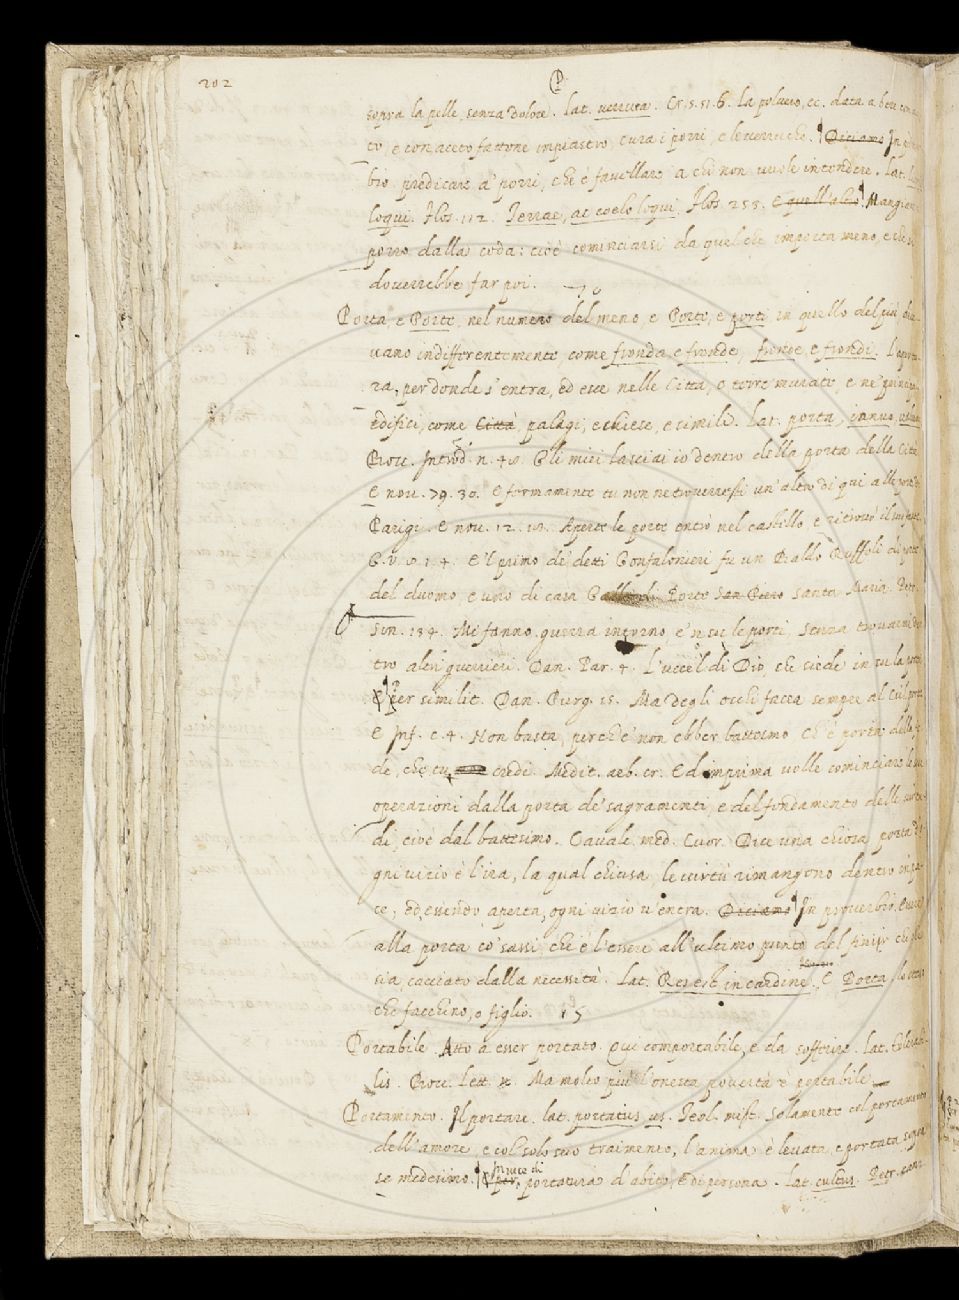 202
P
sopra la pelle, senza dolore. Lat. verruca. Cr. 5. 51. 6. La polvere, ec. data a bere con a
to, e con aceto fattone impiastro, cura i porri, e le verruche. Diciamo In prover
bio predicare a' porri, che è favellare a chi non vuole intendere. Lat.
loqui. Flos. 112. Terrae, ac coelo loqui. Flos. 255. E quell'altro Mangiare
porro dalla coda: cioè cominciarsi da quel che importa meno, e che si
doverrebbe far poi.
Porta, e Porte, nel numero del meno, e Porte, e porti in quello del più, dice
vano indifferentemente, come fronda, e fronde, fronde, e frondi. L'apertu
ra, per donde s'entra, ed esce nelle Città, o terre murate e ne' principali
edifici, come Città, palagi, e chiese, e simili. Lat. porta, ianua,
Bocc. Introd. n. 40. Gli miei lasciai io dentro della porta della Città
E nov. 79. 30. E fermamente tu non ne troverresti un'altro di qui alle porti di
Parigi. E nov. 12. 10. Aperte le porte entrò nel castello
G. V. 1. 4. E 'l primo de' detti Gonfalonieri fu un Baldo Ruffoli di porte
del duomo, e uno di casa Porte San Piero Santa Maria. Petr.
Son. 134. Mi fanno guerra intorno, e 'n su le porti, senza trovarmi den
tro altri guerrieri. Dan. Par. 4. L'uccel di Dio, che siede in su la porta
Per similit. Dan. Purg. 15. Ma degli occhi facea sempre al Cul porta
E Inf. c. 4. Non basta, perch'e' non ebber battesmo Ch'è porta della fe
de, che tu credi. Medit. arb. cr. Ed imprima volle cominciare le sue
operazioni dalla porta de' sagramenti, e del fondamento delle
di, cioè dal battesimo. Cavalc. med. cuor. Dice una chiosa, porta d'o
gni vizio è l'ira, la qual chiusa, le virtù rimangono dentro in pa
ce, ed essendo aperta, ogni vizio v'entra. Diciamo In proverbio. Essere
alla porta co' sassi, che è l'essere all'ultimo punto del finir
sia, cacciato dalla necessità. Lat. Res est in cardine. E Porta, lo stesso
che facchino, o figlio. 15
Portabile. Atto a esser portato. Qui comportabile, e da soffrire. Lat. tolerabi
lis. Bocc. lett. Ma molto più l'onesta povertà è portabile
Portamento. Il portare. lat. portatus, us. Teol. mist. Solamente col portamento
dell'amore, e col solo suo traimento, l'anima è levata, e portata sopra
se medesimo. In vece di portatura d'abito, e di persona. Lat. cultus. Petr. canz